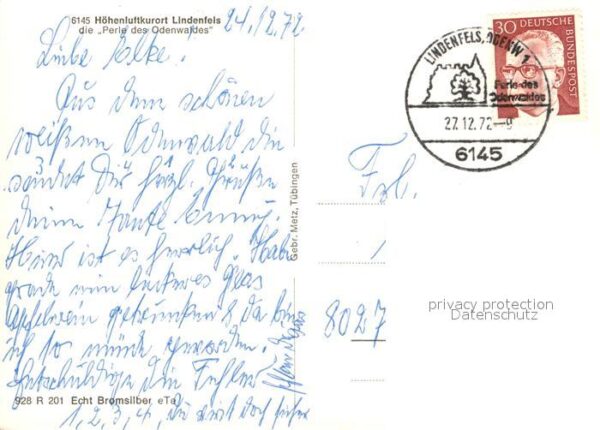 6145 Höhenluftkurort Lindenfels
die „Perle des Odenwaldes"
24.12.72
Liebe
Aus dem schönen
weißen Odenwald die
sendet Dir herzl. Grüße
deine Tante
Hier ist es herrlich. Habe
grade ein leckeres Glas
Apfelwein getrunken & da bin
ich so müde geworden.
Entschuldige die Fehler
1, 2, 3, 4, du wirst doch sicher
928 R 201 Echt Bromsilber eTa
Gebr. Metz, Tübingen
LINDENFELS, ODENW 1
Perle des
Odenwaldes
27.12.72-9
6145
30
DEUTSCHE
BUNDESPOST
Frl.
8027
privacy protection
Datenschutz